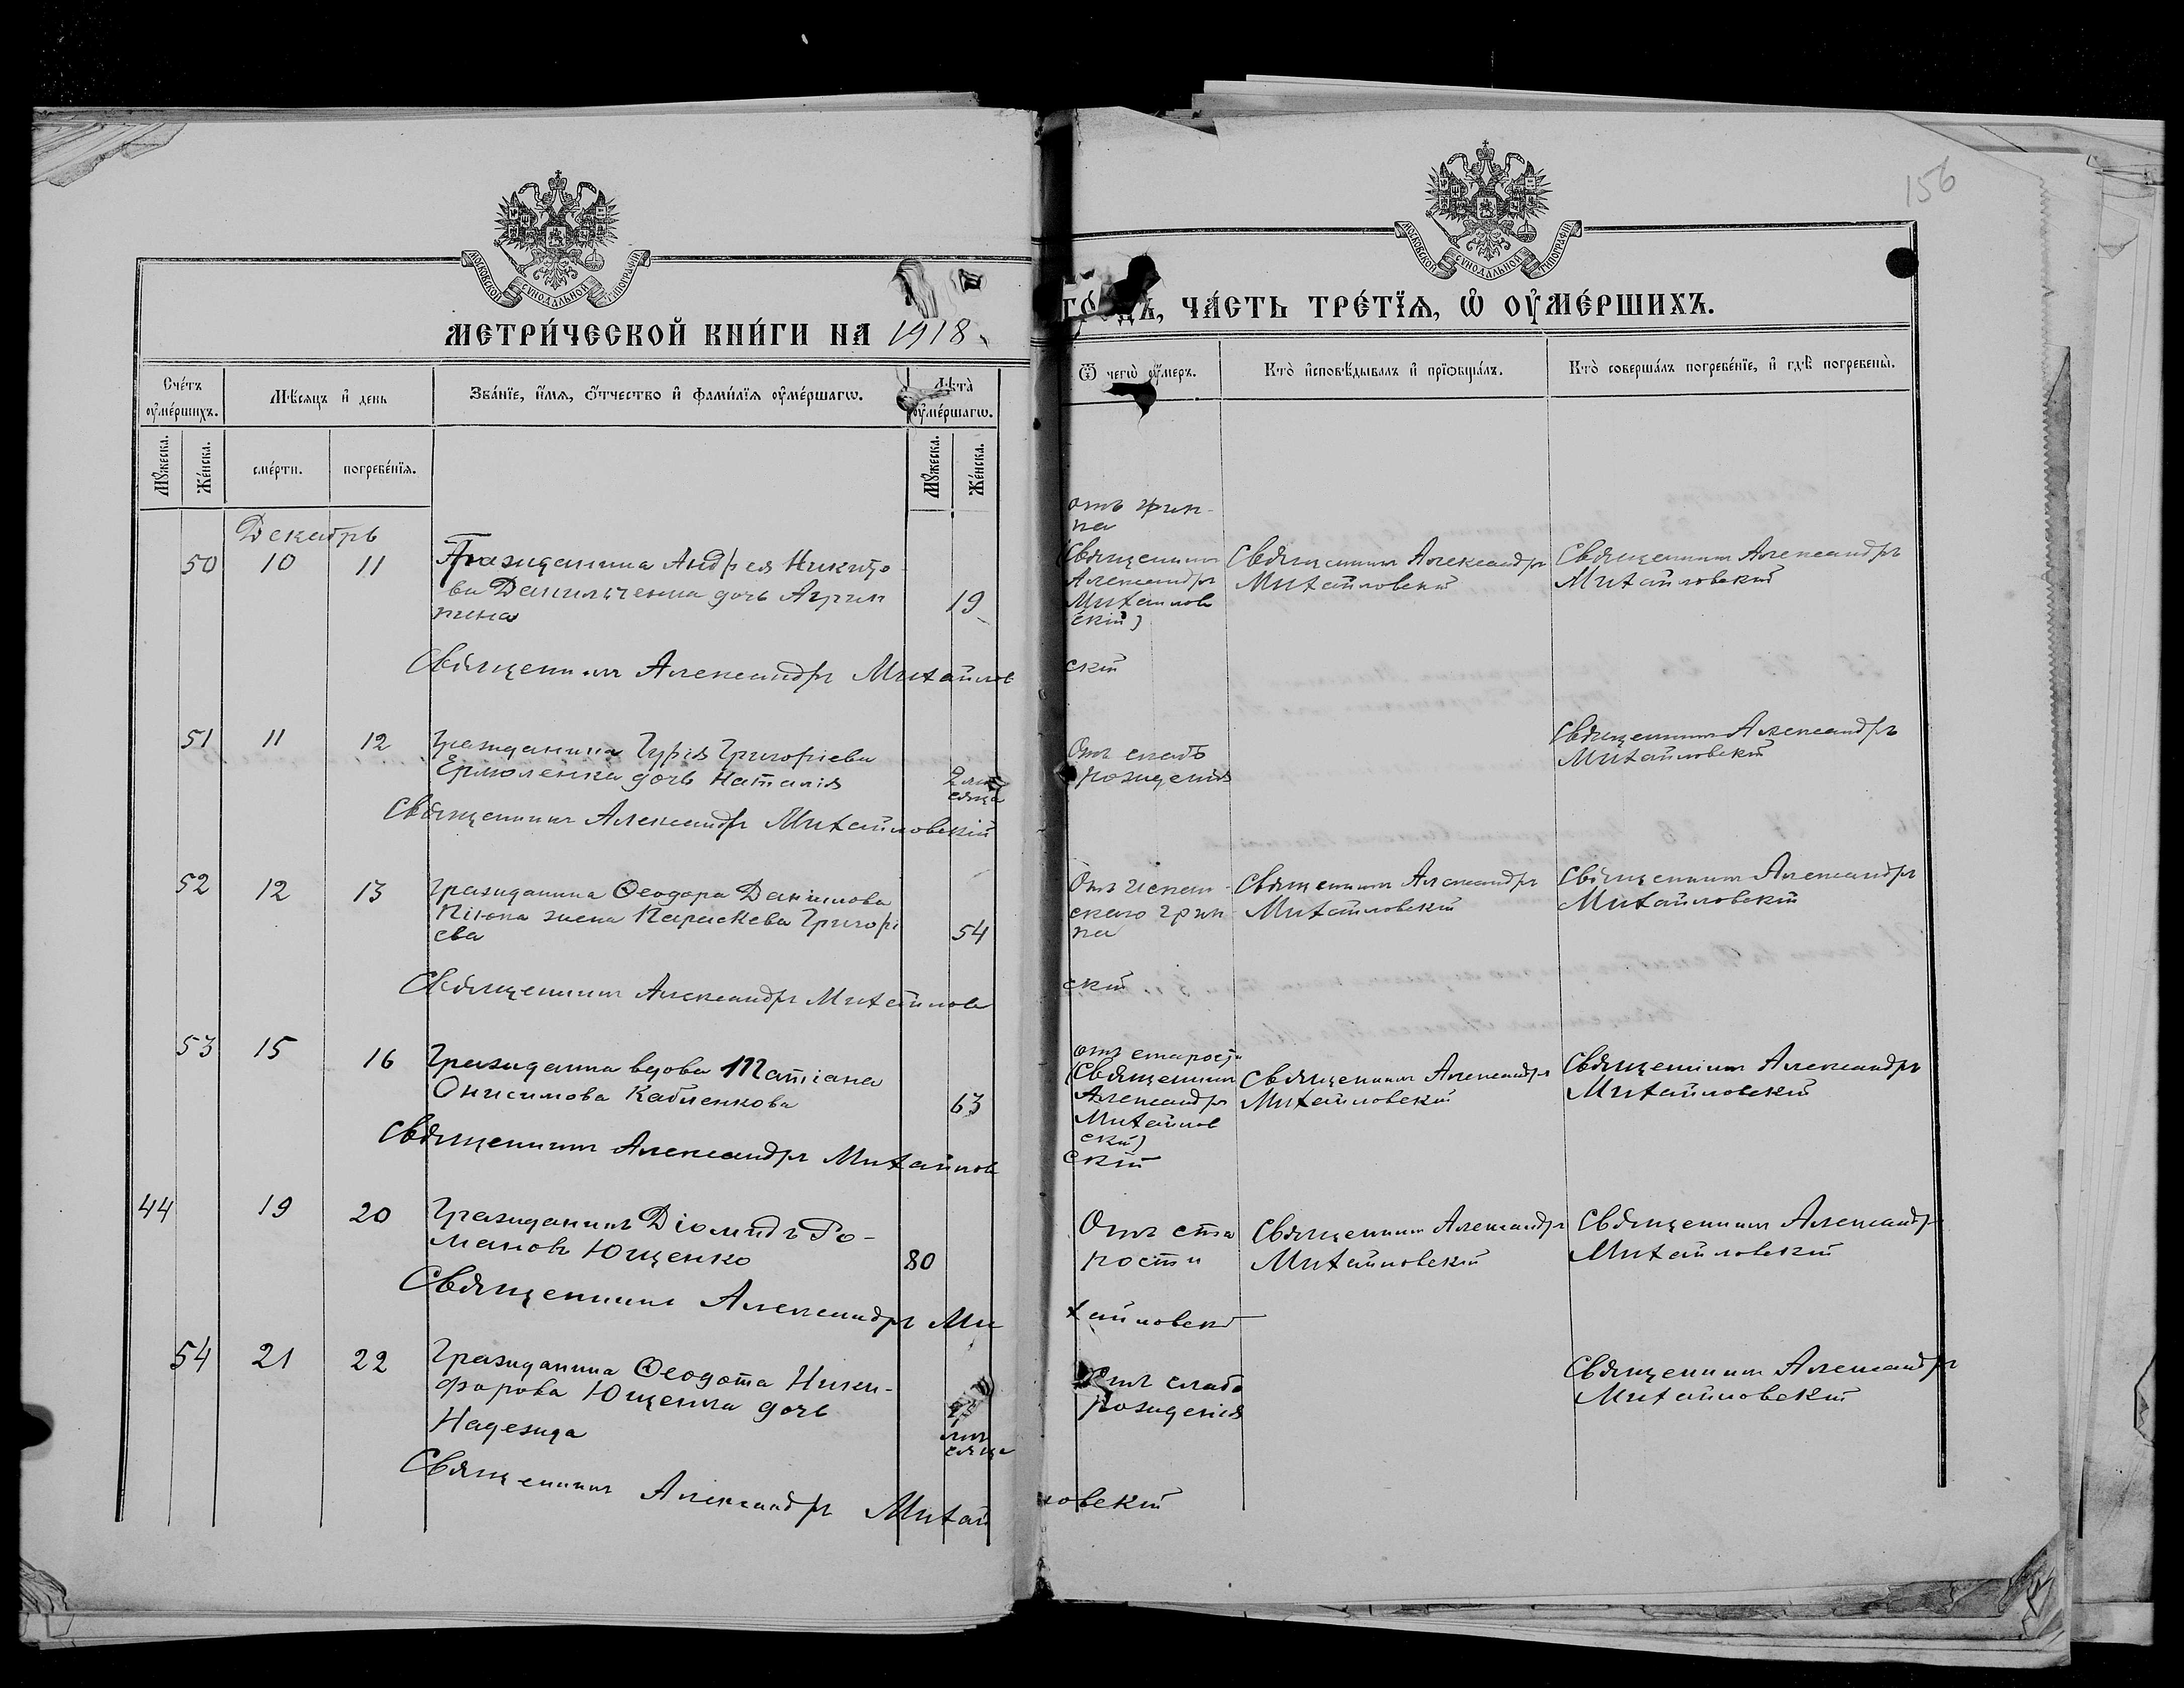 156
МОСКОВСКОЙ СѴНОДАЛЬНОЙ ТИПОГРАФІИ
МОСКОВСКОЙ СѴНОДАЛЬНОЙ ТИПОГРАФІИ
МЕТРИ́ЧЕСКОЙ КНИ́ГИ НА 1918
ГО́ДЪ, ЧА́СТЬ ТРЕ́ТЇѦ, Ѡ҆ ОУ҆МЕ́РШИХЪ.
Сче́тъ оу҆ме́ршихъ.
Мѣ́сѧцъ и҆ день
Зва́нїе, и҆́мѧ, ѻ҆́тчество и҆ фами́лїѧ оу҆ме́ршагѡ.
Лѣ́та̀ оу҆ме́ршагѡ.
Ѿ чегѡ̀ оу҆́меръ.
Кто̀ и҆сповѣ́дывалъ и҆ прїѡбща́лъ.
Кто̀ соверша́лъ погребе́нїе, и҆ гдѣ̀ погребены̀.
Мꙋ́жеска.
Же́нска.
сме́рти.
погребе́нїѧ.
Мꙋ́жеска.
Же́нска.
Декабрь
50 10 11
Гражданина Андрея Никито
ва Данильченка дочь Агрип
пина
19
отъ грип-
па
(Священникъ
Александръ
Михайлов
скій)
Священникъ Александръ
Михайловскій
Священникъ Александръ
Михайловскій
Священникъ Александръ Михайлов
скій
51 11 12
Гражданина Гурія Григоріева
Ермоленка дочь Наталія
2 мѣ
сяца
Отъ слабо
рожденія
Священникъ Александръ
Михайловскій
Священникъ Александръ Михайловскій
52 12 13
Гражданина Ѳеодора Данилова
жена Параскева Григорі
ева
54
Отъ испан-
скаго грип
па
Священникъ Александръ
Михайловскій
Священникъ Александръ
Михайловскій
Священникъ Александръ Михайлов
скій
53 15 16
Гражданка вдова Татіана
Онисимова Кабленкова
63
отъ старости
(Священникъ
Александръ
Михайлов
скій)
Священникъ Александръ
Михайловскій
Священникъ Александръ
Михайловскій
Священникъ Александръ Михайлов
скій
44 19 20
Гражданинъ Діомидъ Ро-
мановъ Ющенко
80
Отъ ста
рости
Священникъ Александръ
Михайловскій
Священникъ Александръ
Михайловскій
Священникъ Александръ Ми
хайловскій
54 21 22
Гражданина Ѳеодота Ники-
форова Ющенка дочь
Надежда
мѣ
сяца
Отъ слабо
рожденія
Священникъ Александръ
Михайловскій
Священникъ Александръ Михай
ловскій